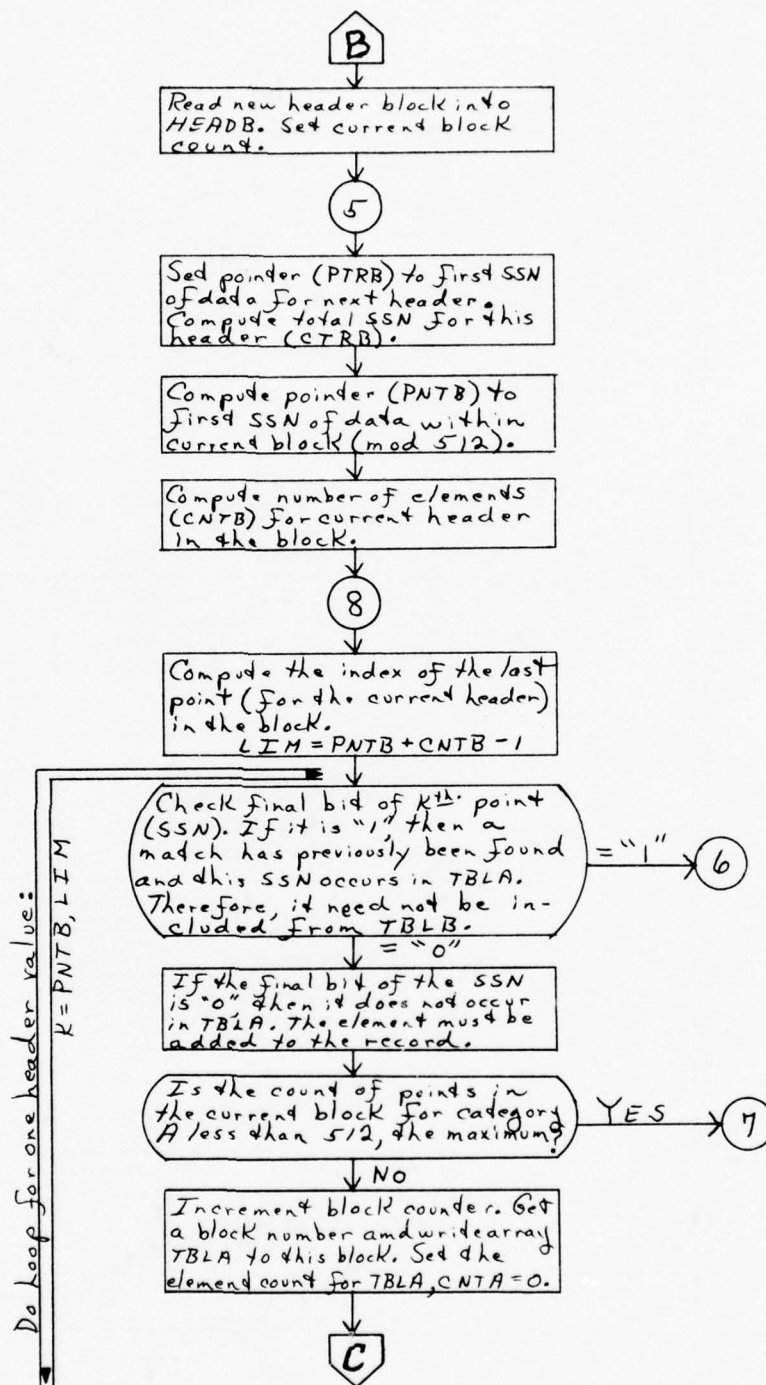 B
Read new header block into
HEADB. Set current block
count.
5
Set pointer (PTRB) to first SSN
of data for next header.
Compute total SSN for this
header (CTRB).
Compute pointer (PNTB) to
first SSN of data within
current block (mod 512).
Compute number of elements
(CNTB) for current header
in the block.
8
Compute the index of the last
point (for the current header)
in the block.
LIM = PNTB + CNTB - 1
Do Loop for one header value:
K = PNTB, LIM
Check final bit of Kth. point
(SSN). If it is "1", then a
match has previously been found
and this SSN occurs in TBLA.
Therefore, it need not be in-
cluded from TBLB.
= "1"
6
= "0"
If the final bit of the SSN
is "0", then it does not occur
in TBLA. The element must be
added to the record.
Is the count of points in
the current block for category
A less than 512, the maximum?
YES
7
NO
Increment block counter. Get
a block number amd write array
TBLA to this block. Set the
element count for TBLA, CNTA = 0.
C